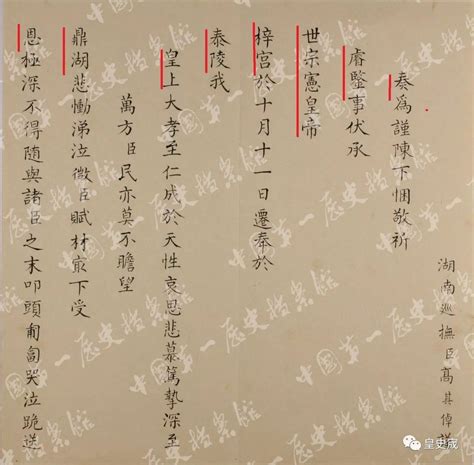 湖南巡撫臣高其倬謹
奏為謹陳下悃敬祈
睿鑒事伏承
世宗憲皇帝
梓宮於十月十一日遷奉於
泰陵我
皇上大孝至仁成於天性哀思悲慕篤摯深至
萬方臣民亦莫不瞻望
鼎湖悲慟涕泣微臣賦材最下受
恩極深不得隨與諸臣之末叩頭匍匐哭泣跪送
中國第一歷史檔案館
皇史宬